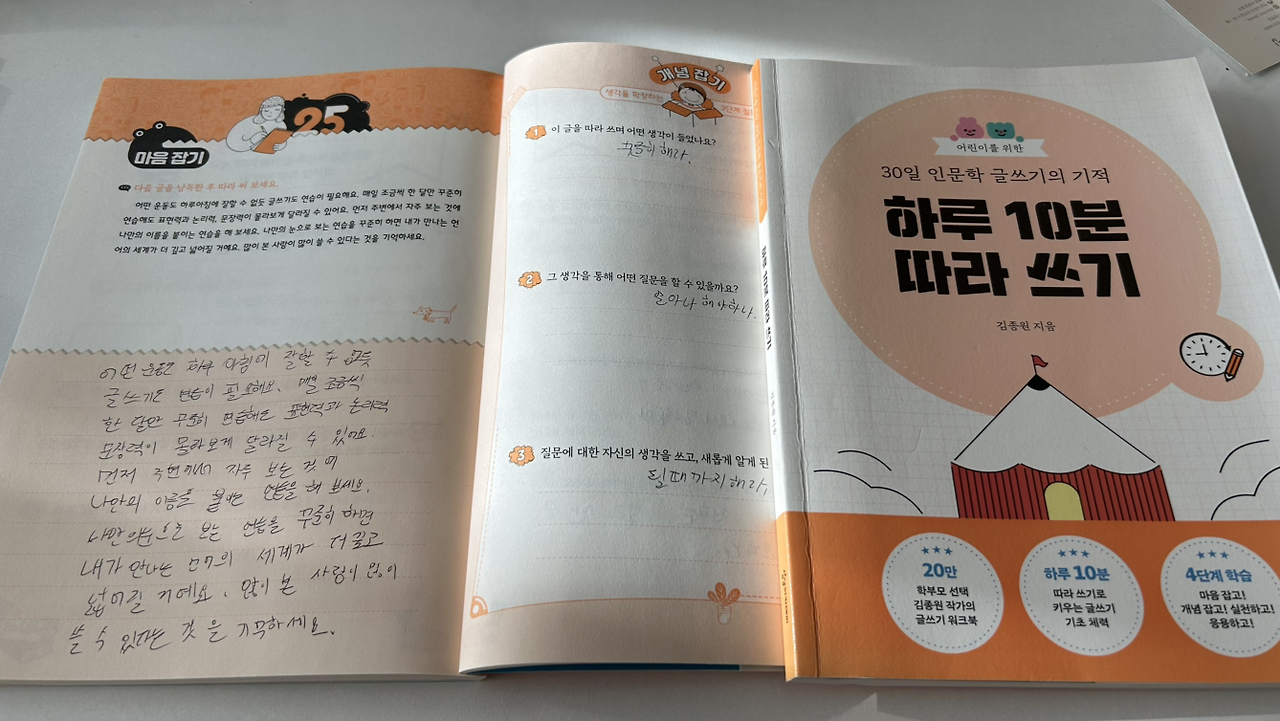 25
마음 잡기
다음 글을 낭독한 후 따라 써 보세요.
어떤 운동도 하루아침에 잘할 수 없듯 글쓰기도 연습이 필요해요. 매일 조금씩 한 달만 꾸준히
연습해도 표현력과 논리력, 문장력이 몰라보게 달라질 수 있어요. 먼저 주변에서 자주 보는 것에
나만의 이름을 붙이는 연습을 해 보세요. 나만의 눈으로 보는 연습을 꾸준히 하면 내가 만나는 언
어의 세계가 더 깊고 넓어질 거예요. 많이 본 사람이 많이 쓸 수 있다는 것을 기억하세요.
어떤 운동도 하루 아침에 잘할 수 없듯
글쓰기도 연습이 필요해요. 매일 조금씩
한 달만 꾸준히 연습해도 표현력과 논리력
문장력이 몰라보게 달라질 수 있어요.
먼저 주변에서 자주 보는 것에
나만의 이름을 붙이는 연습을 해 보세요.
나만의 눈으로 보는 연습을 꾸준히 하면
내가 만나는 언어의 세계가 더 깊고
넓어질 거예요. 많이 본 사람이 많이
쓸 수 있다는 것을 기억하세요.
개념 잡기
생각을 확장하는 3단계 질문
1 이 글을 따라 쓰며 어떤 생각이 들었나요?
꾸준히 해라.
2 그 생각을 통해 어떤 질문을 할 수 있을까요?
얼마나 해야하나.
3 질문에 대한 자신의 생각을 쓰고, 새롭게 알게 된
될때까지해라.
하루 10분 따라 쓰기
김종원 지음
어린이를 위한
30일 인문학 글쓰기의 기적
하루 10분
따라 쓰기
김종원 지음
20만
학부모 선택
김종원 작가의
글쓰기 워크북
하루 10분
따라 쓰기로
키우는 글쓰기
기초 체력
4단계 학습
마음 잡고!
개념 잡고! 실천하고!
응용하고!